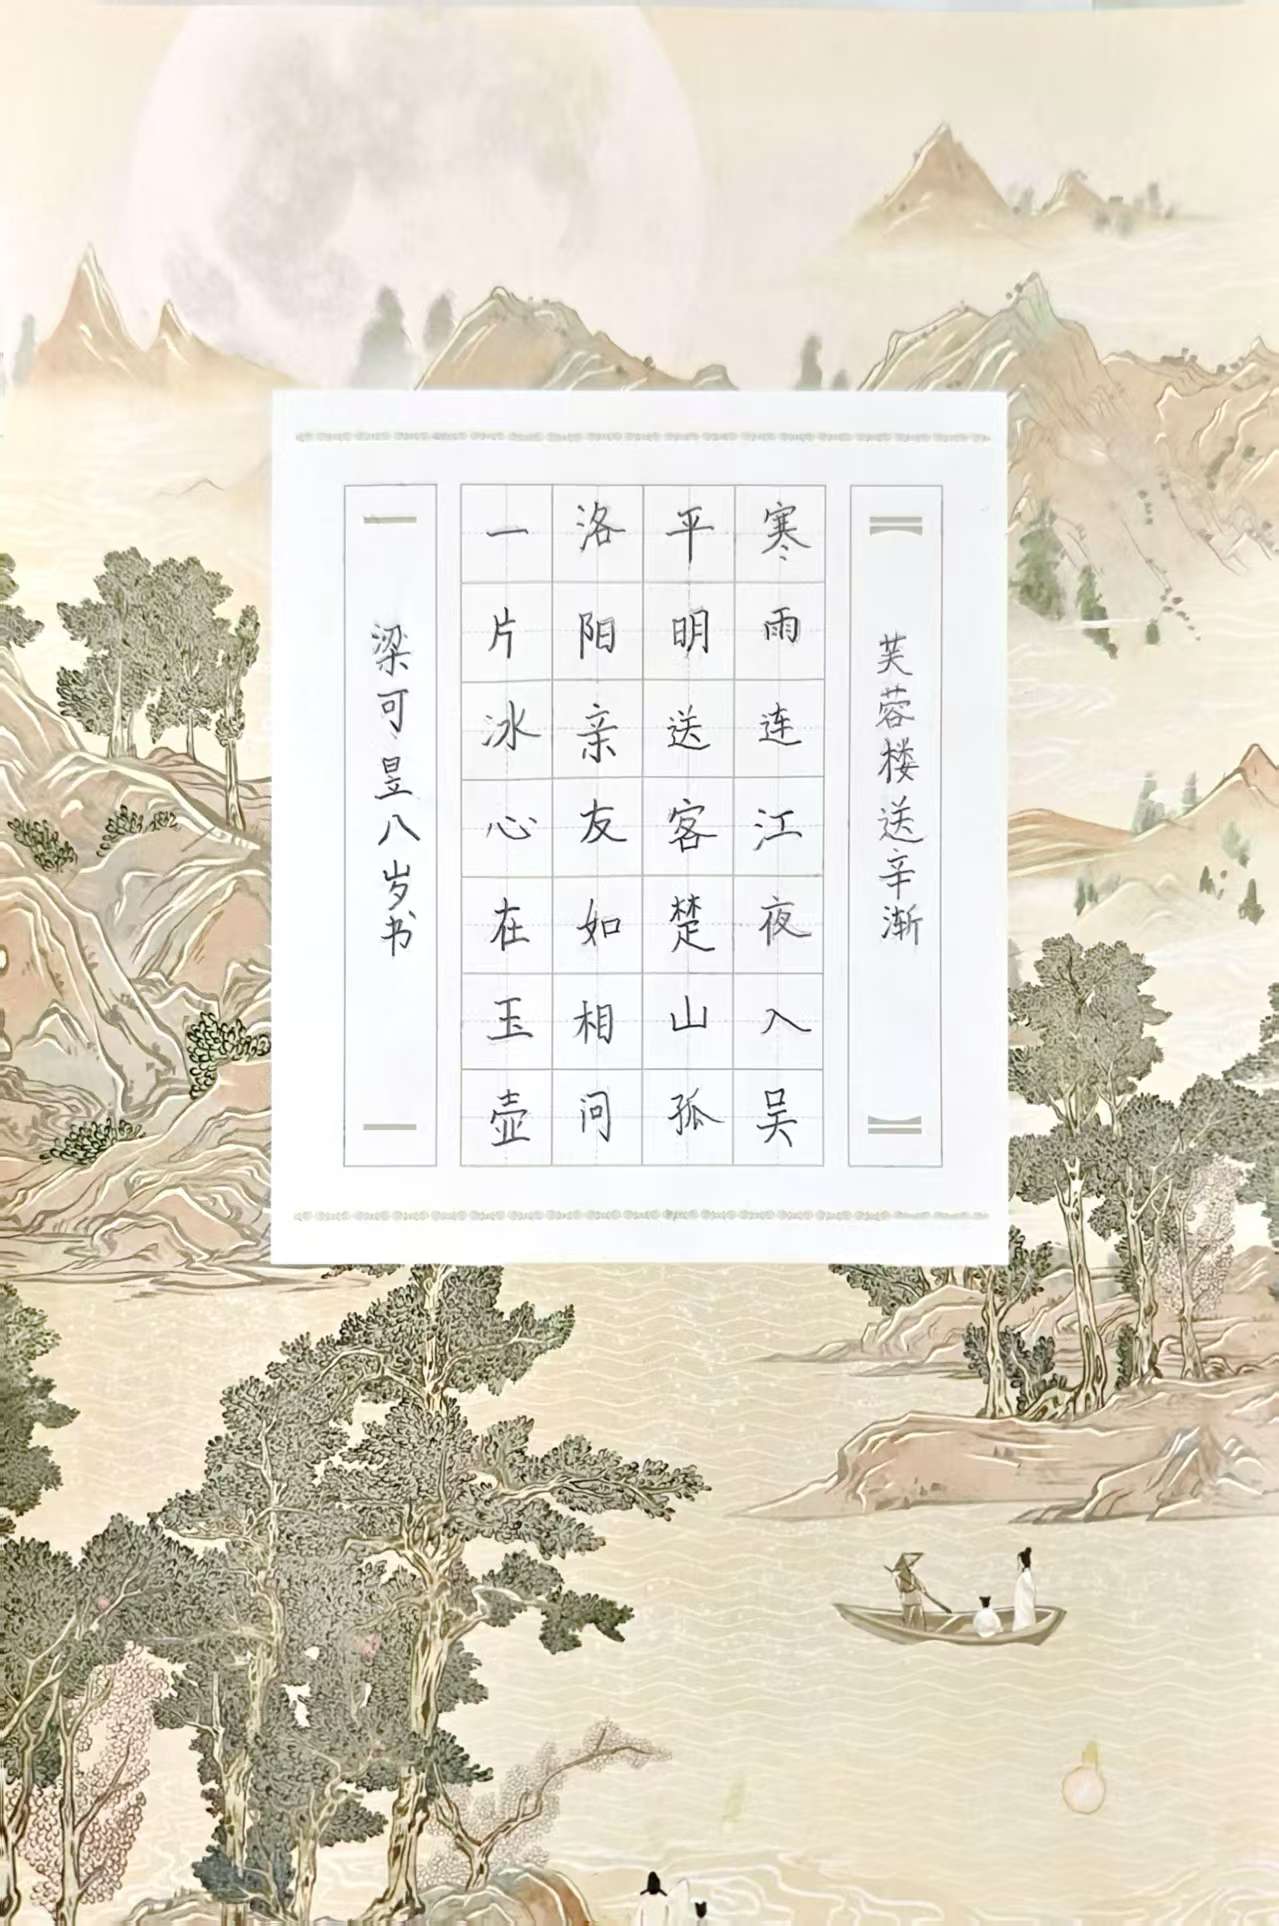 芙蓉楼送辛渐
寒雨连江夜入吴
平明送客楚山孤
洛阳亲友如相问
一片冰心在玉壶
梁可昱八岁书